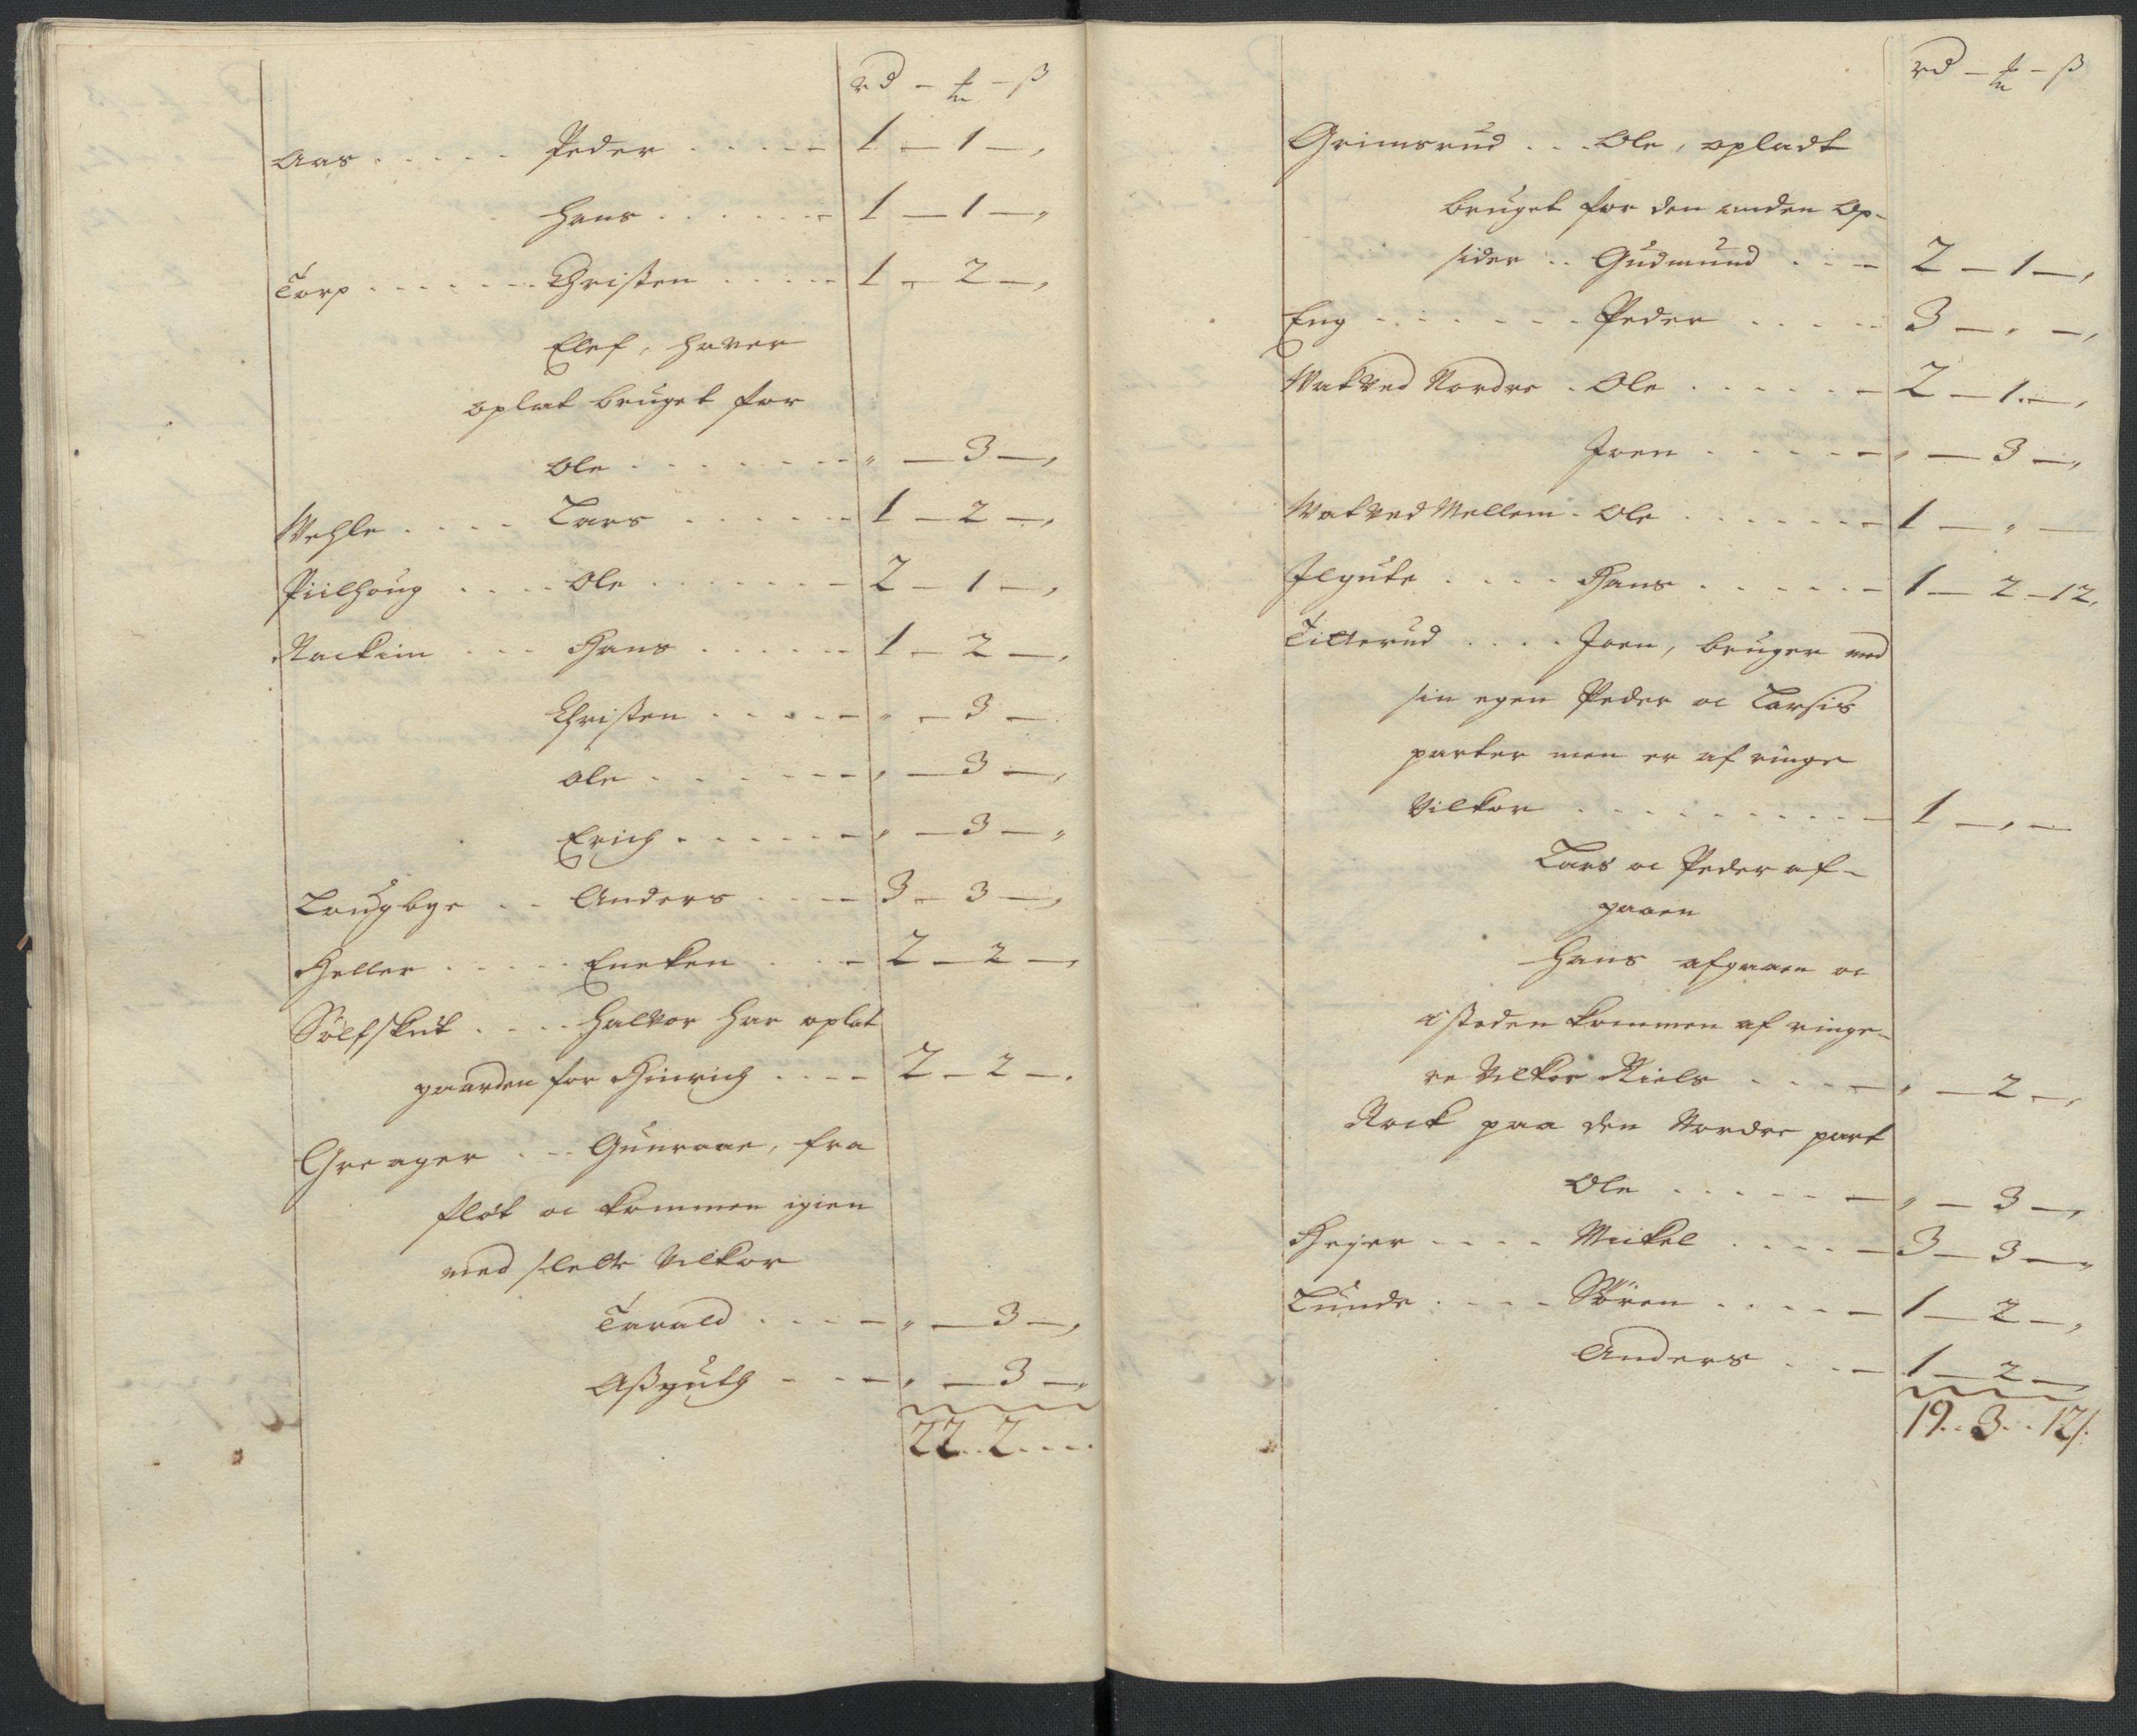 rd - ₥ - ß
Aas . . . . . Peder . . . . . 1 — 1 — ,
Hans . . . . . . 1 — 1 — „
Torp . . . . . . . Christen . . . . . 1 — 2 — ,
Elef, haver
oplat bruget for
Ole . . . . . . . „ — 3 — ,
Wehle . . . . Lars . . . . . . 1 — 2 — ,
Piilhoug . . . . Ole . . . . . . . 2 — 1 — ,
Rackim . . . Hans . . . . . . 1 — 2 — ,
Christen . . . . . „ — 3 —
Ole . . . . . . . , — 3 — ,
Erich . . . . . . „ — 3 — „
Lougbye . . Anders . . . . 3 — 3 — ,
Heller . . . . . Eneken . . . 2 — 2 — ,
Sölfskut . . . . Halvor har oplat
gaarden for Hinrich . . . . 2 — 2 — .
Greager . . . Gunroae, fra
flöt oc kommen igien
med slette Vilkor
Tarald . . . . „ — 3 — ,
Aßguth . . . . , — 3 — „
22 . . 2 . . . .
rd - ₥ - ß
Grimsrud . . . Ole, opladt
bruget for den anden Op-
sider . . Gudmund . . . 2 — 1 — ,
Eng . . . . . . . Peder . . . . . 3 — , — ,
Watved Nordre . Ole . . . . . . 2 — 1 . — ,
Joen . . . . . . , — 3 — ,
Watved Mellem . Ole . . . . . . 1 — „ —
Jlgute . . . . Hans . . . . . . 1 — 2 — 12,
Titterud . . . . Joen, bruger med
sin egen Peder oc Larsis
parter men er af ringe
Vilkor . . . . . . . . . . 1 — , —
Lars oc Peder af-
gaaen
Hans afgaaen oc
i stæden kommen af ringe-
re Vilkor Niels . . . . , — 2 — ,
Nock paa den Nordre part
Ole . . . . . . „ — 3 — ,
Hejer . . . . Mickel . . . . . 3 — 3 — „
Lunde . . . . Sören . . . . . 1 — 2 — ,
Anders . . . 1 — 2 — ,
19 . . 3 . . 12 ß.